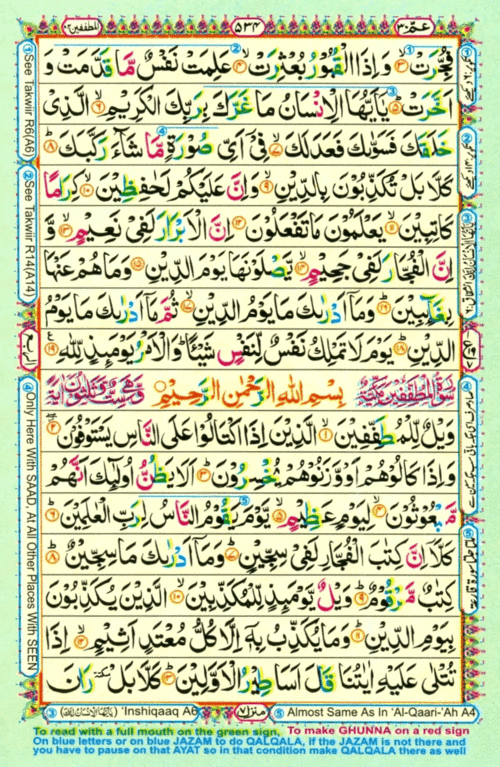 المطففين ٨٣
٥٣٤
عمّ ٣٠
فُجِّرَتۡ ۙ‏﴿۳﴾ وَاِذَا الۡقُبُوۡرُ بُعۡثِرَتۡ ۙ‏﴿۴﴾ عَلِمَتۡ نَفۡسٌ مَّا قَدَّمَتۡ وَ
اَخَّرَتۡؕ‏﴿۵﴾ يٰۤاَيُّهَا الۡاِنۡسَانُ مَا غَرَّكَ بِرَبِّكَ الۡكَرِيۡمِۙ‏﴿۶﴾ الَّذِىۡ
خَلَقَكَ فَسَوّٰٮكَ فَعَدَلَكَۙ‏﴿۷﴾ فِىۡۤ اَىِّ صُوۡرَةٍ مَّا شَآءَ رَكَّبَكَؕ‏﴿۸﴾
كَلَّا بَلۡ تُكَذِّبُوۡنَ بِالدِّيۡنِۙ‏﴿۹﴾ وَاِنَّ عَلَيۡكُمۡ لَحٰـفِظِيۡنَۙ‏﴿۱۰﴾ كِرَامًا
كَاتِبِيۡنَۙ‏﴿۱۱﴾ يَعۡلَمُوۡنَ مَا تَفۡعَلُوۡنَ‏﴿۱۲﴾ اِنَّ الۡاَبۡرَارَ لَفِىۡ نَعِيۡمٍۚ‏﴿۱۳﴾ وَّ
اِنَّ الۡفُجَّارَ لَفِىۡ جَحِيۡمٍ ۚۖ‏﴿۱۴﴾ يَّصۡلَوۡنَهَا يَوۡمَ الدِّيۡنِ‏﴿۱۵﴾ وَمَا هُمۡ عَنۡهَا
بِغَآٮِٕبِيۡنَؕ‏﴿۱۶﴾ وَمَاۤ اَدۡرٰٮكَ مَا يَوۡمُ الدِّيۡنِۙ‏﴿۱۷﴾ ثُمَّ مَاۤ اَدۡرٰٮكَ مَا يَوۡمُ
الدِّيۡنِؕ‏﴿۱۸﴾ يَوۡمَ لَا تَمۡلِكُ نَفۡسٌ لِّنَفۡسٍ شَيۡـــًٔا ؕ وَالۡاَمۡرُ يَوۡمَٮِٕذٍ لِّلّٰهِ‏﴿۱۹﴾
سُوۡرَةُ الۡمُطَفِّفِيۡنَ مَكِّيَّةٌ
بِسۡمِ اللهِ الرَّحۡمٰنِ الرَّحِيۡمِ
وَّهِىَ سِتٌّ وَّثَلٰثُوۡنَ اٰيَةً
وَيۡلٌ لِّلۡمُطَفِّفِيۡنَۙ‏﴿۱﴾ الَّذِيۡنَ اِذَا اكۡتَالُوۡا عَلَى النَّاسِ يَسۡتَوۡفُوۡنَۖ‏﴿۲﴾
وَاِذَا كَالُوۡهُمۡ اَوْ وَّزَنُوۡهُمۡ يُخۡسِرُوۡنَؕ‏﴿۳﴾ اَلَا يَظُنُّ اُولٰٓٮِٕكَ اَنَّهُمۡ
مَّبۡعُوۡثُوۡنَۙ‏﴿۴﴾ لِيَوۡمٍ عَظِيۡمٍۙ‏﴿۵﴾ يَّوۡمَ يَقُوۡمُ النَّاسُ لِرَبِّ الۡعٰلَمِيۡنَؕ‏﴿۶﴾
كَلَّاۤ اِنَّ كِتٰبَ الۡفُجَّارِ لَفِىۡ سِجِّيۡنٍؕ‏﴿۷﴾ وَمَاۤ اَدۡرٰٮكَ مَا سِجِّيۡنٌؕ‏﴿۸﴾
كِتٰبٌ مَّرۡقُوۡمٌؕ‏﴿۹﴾ وَيۡلٌ يَّوۡمَٮِٕذٍ لِّلۡمُكَذِّبِيۡنَۙ‏﴿۱۰﴾ الَّذِيۡنَ يُكَذِّبُوۡنَ
بِيَوۡمِ الدِّيۡنِؕ‏﴿۱۱﴾ وَمَا يُكَذِّبُ بِهٖۤ اِلَّا كُلُّ مُعۡتَدٍ اَثِيۡمٍۙ‏﴿۱۲﴾ اِذَا
تُتۡلٰى عَلَيۡهِ اٰيٰتُنَا قَالَ اَسَاطِيۡرُ الۡاَوَّلِيۡنَؕ‏﴿۱۳﴾ كَلَّا بَلۡ رَانَ
① See Takwiir R6(A6)
② See Takwiir R14(A14)
الربع
④ Only Here With SAAD, At All Other Places With SEEN
③ (يٰۤاَيُّهَا الۡاِنۡسَانُ) 'Inshiqaaq A6
منزل ٧
⑤ Almost Same As In 'Al-Qaari-'Ah A4
To read with a full mouth on the green sign, To make GHUNNA on a red sign
On blue letters or on blue JAZAM to do QALQALA, if the JAZAM is not there and
you have to pause on that AYAT so in that condition make QALQALA there as well